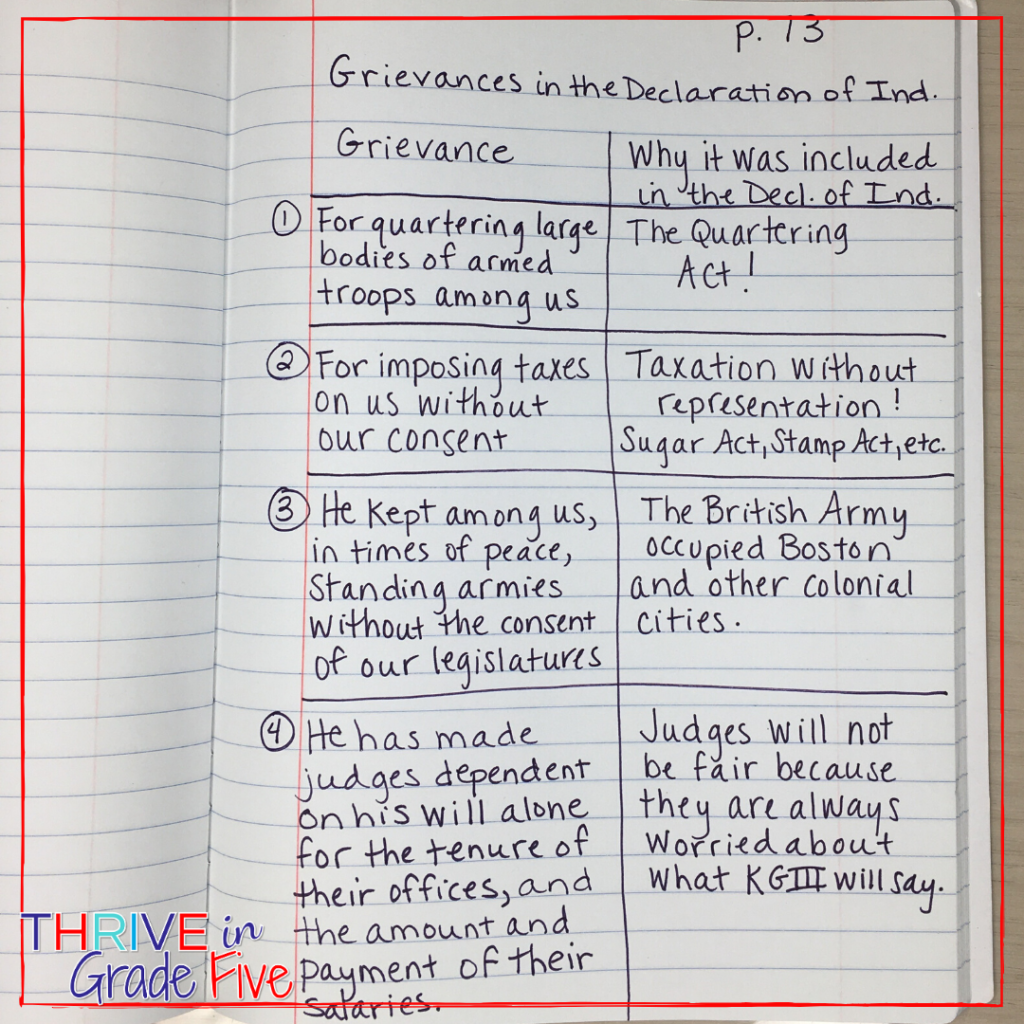 p. 13
Grievances in the Declaration of Ind.
Grievance
Why it was included
in the Decl. of Ind.
① For quartering large
bodies of armed
troops among us
The Quartering
Act!
② For imposing taxes
on us without
our consent
Taxation without
representation!
Sugar Act, Stamp Act, etc.
③ He kept among us,
in times of peace,
Standing armies
without the consent
of our legislatures
The British Army
occupied Boston
and other colonial
cities.
④ He has made
judges dependent
on his will alone
for the tenure of
their offices, and
the amount and
payment of their
salaries.
Judges will not
be fair because
they are always
worried about
what KGIII will say.
THRIVE in
Grade Five